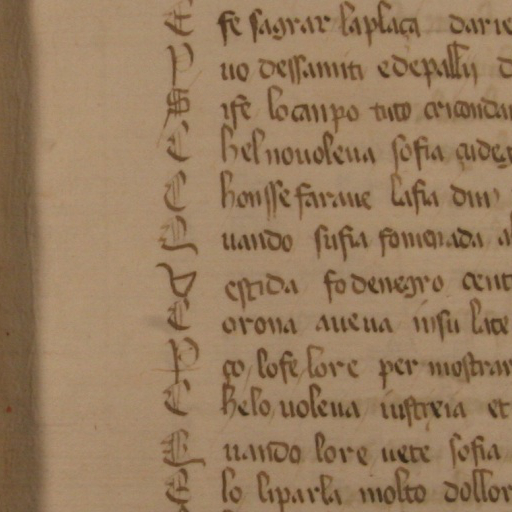 E fe sagrar la plaça darie
P uo dessamiti e de pallii d
S ife lo canpo tuto circonda
C hel no uoleua sofia
C honsse faraue la fia dun
Q uando sufia fomenada a
V estida fo de negro cent
C orona aueua in su la te
P ço lo fe lo re per mostrar
C helo uoleua iustiçia et
Q uando lo re uete sofia
E lo li parla molto dollor